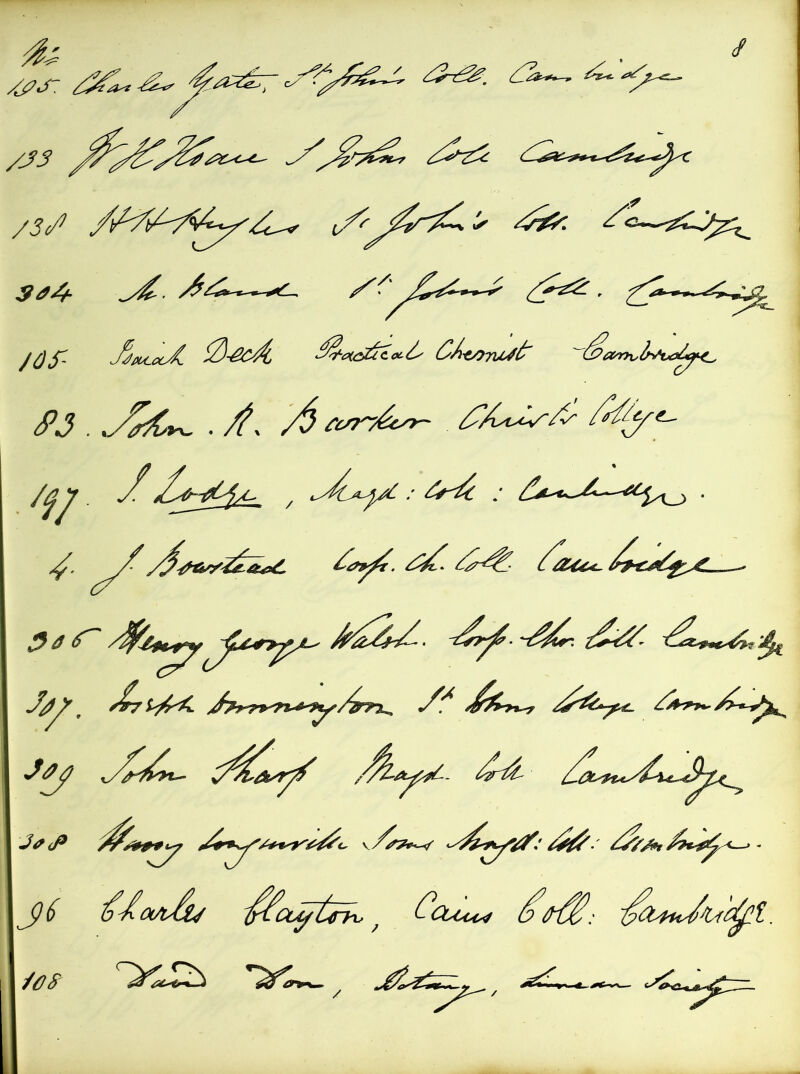 8
No
195. Charles Yate, St John's Coll. Cambridge
133 W H Hoare S Johns Coll Cambridge
138 H H Hughes St John's Coll. Cambridge
304 M. Bland St. John's Coll. Cambridge
105. Isaiah Deck Practical Chemist Cambridge
83. John. R. Barker Christ's College
197. J. Lodge, Magd: Coll: Cambridge.
4. J. Bowstead Corp. Ch. Coll. Cambridge
306 Henry George Walsh. Corp. Chr. Coll. Cambridge
307. Joseph Dunnington St. Johns College Cambridge
309 John Sharp Magd. Coll Cambridge
308 Harry Longueville Jones Magd: Coll: Cambridge.
96 Charles Clayton, Caius Coll: Cambridge.
108 David Don, Botany, Linnean Society